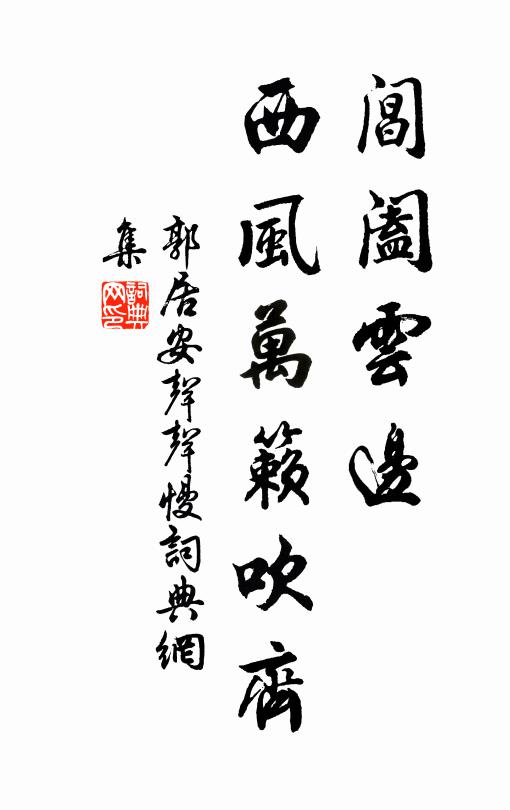 閶闔雲邊
西風萬籟吹齊
郭居安聲聲慢詞典網
集
詞典
网印